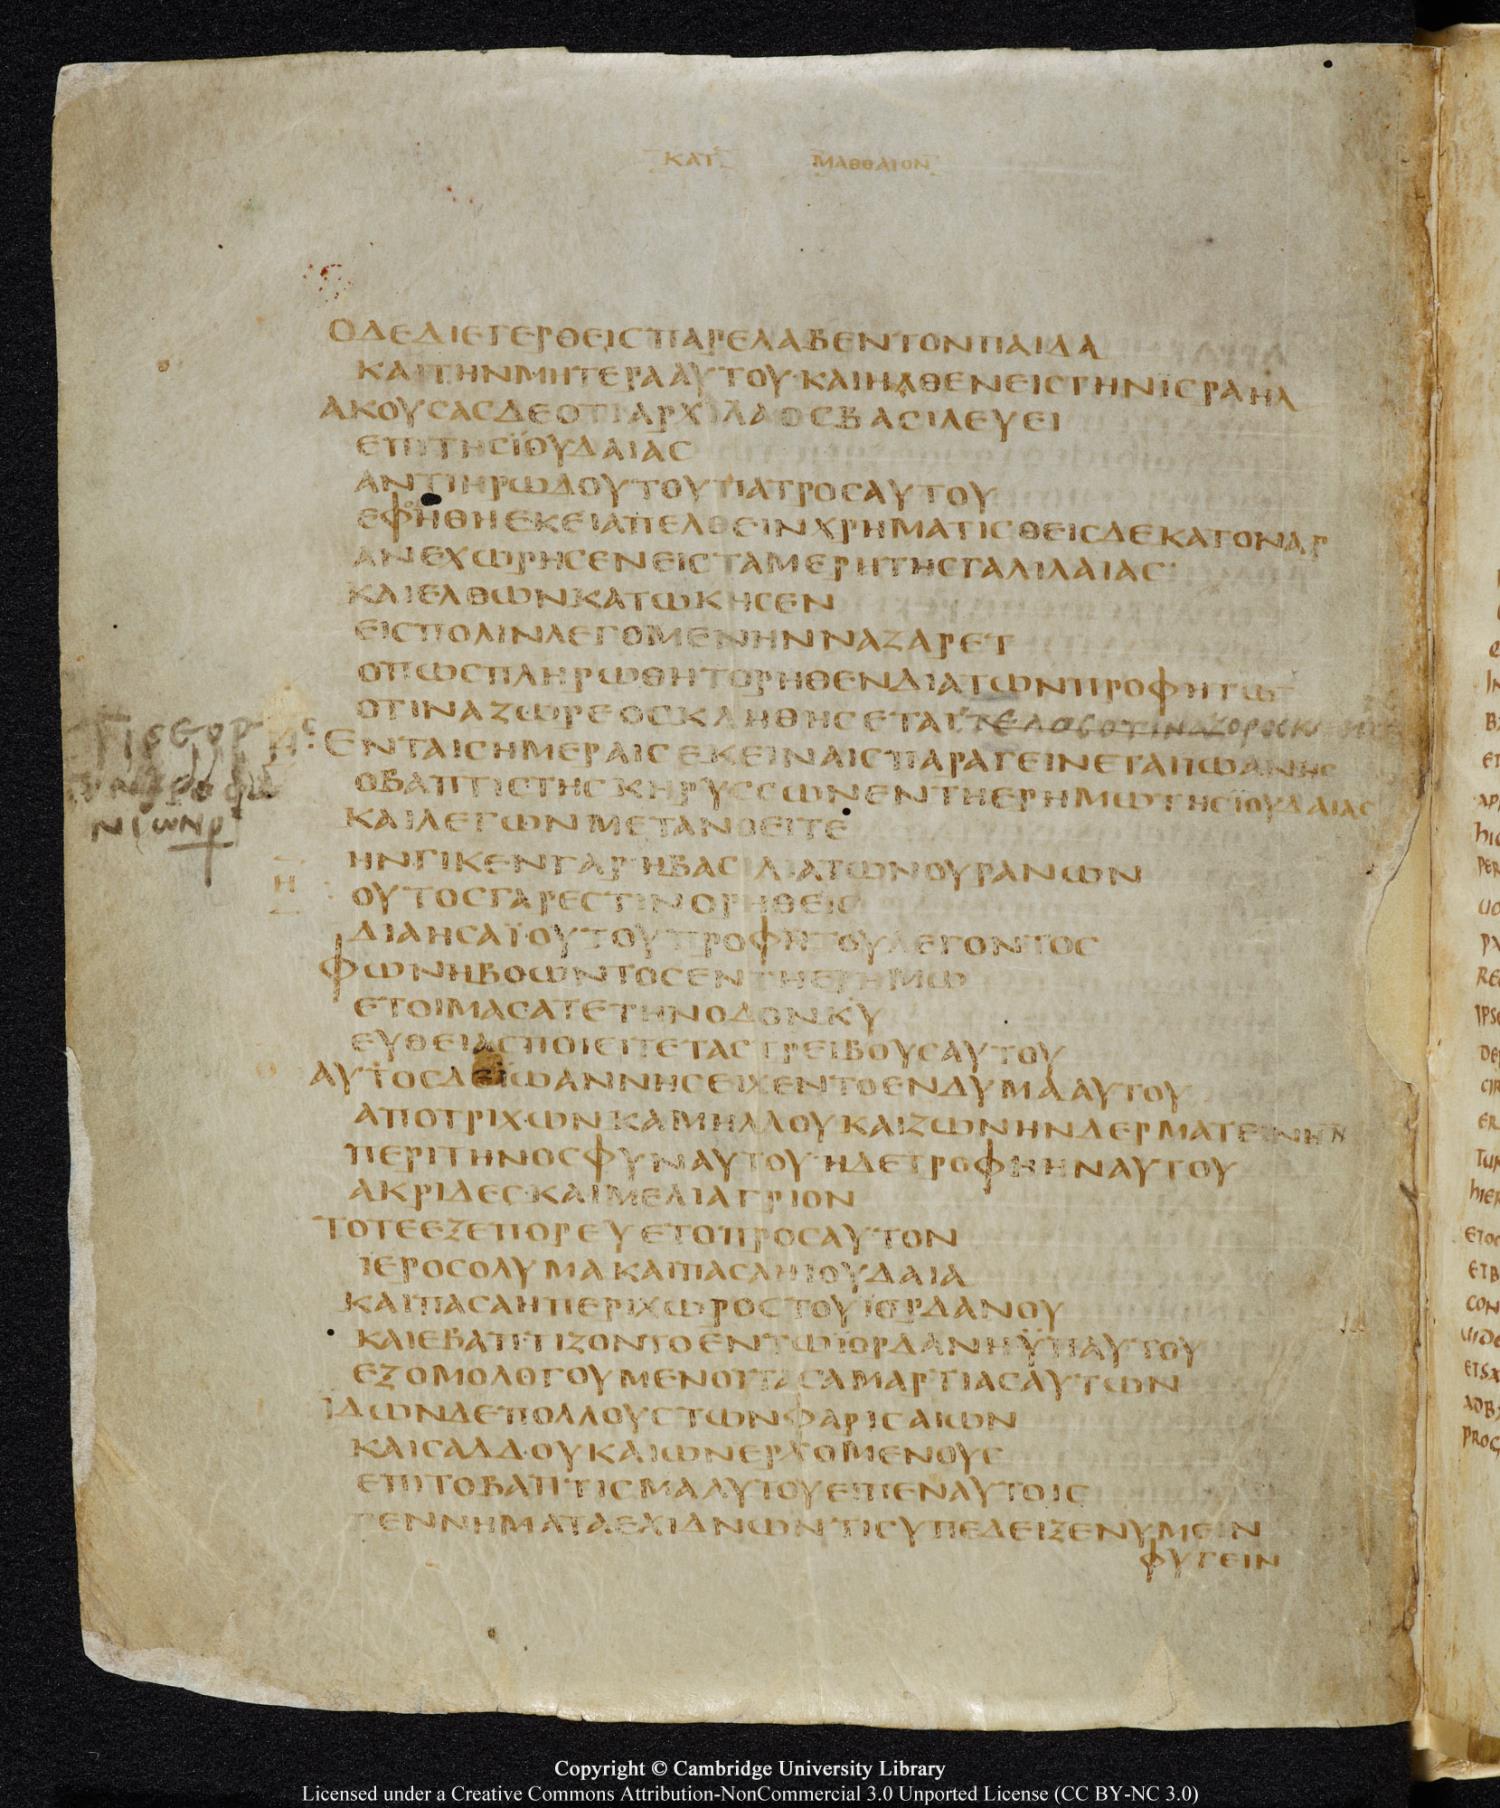 ΚΑΤ ΜΑΘΘΑΙΟΝ
ΟΔΕΔΙΕΓΕΡΘΕΙΣΠΑΡΕΛΑΒΕΝΤΟΝΠΑΙΔΑ
ΚΑΙΤΗΝΜΗΤΕΡΑΑΥΤΟΥ·ΚΑΙΗΛΘΕΝΕΙΣΓΗΝΙΣΡΑΗΛ
ΑΚΟΥΣΑΣΔΕΟΤΙΑΡΧΙΛΑΟΣΒΑΣΙΛΕΥΕΙ
ΕΠΙΤΗΣΪΟΥΔΑΙΑΣ
ΑΝΤΙΗΡΩΔΟΥΤΟΥΠΑΤΡΟΣΑΥΤΟΥ
ΕΦΟΒΗΘΗΕΚΕΙΑΠΕΛΘΕΙΝΧΡΗΜΑΤΙΣΘΕΙΣΔΕΚΑΤΟΝΑΡ
ΑΝΕΧΩΡΗΣΕΝΕΙΣΤΑΜΕΡΗΤΗΣΓΑΛΙΛΑΙΑΣ·
ΚΑΙΕΛΘΩΝΚΑΤΩΚΗΣΕΝ
ΕΙΣΠΟΛΙΝΛΕΓΟΜΕΝΗΝΝΑΖΑΡΕΤ
ΟΠΩΣΠΛΗΡΩΘΗΤΟΡΗΘΕΝΔΙΑΤΩΝΠΡΟΦΗΤΩ
ΟΤΙΝΑΖΩΡΕΟΣΚΛΗΘΗΣΕΤΑΙ ΤΕΛΟΣ
ΕΝΤΑΙΣΗΜΕΡΑΙΣΕΚΕΙΝΑΙΣΠΑΡΑΓΕΙΝΕΤΑΙΙΩΑΝΗΣ
ΟΒΑΠΤΙΣΤΗΣΚΗΡΥΣΣΩΝΕΝΤΗΕΡΗΜΩΤΗΣΪΟΥΔΑΙΑΣ
ΚΑΙΛΕΓΩΝΜΕΤΑΝΟΕΙΤΕ
ΗΝΓΙΚΕΝΓΑΡΗΒΑΣΙΛΙΑΤΩΝΟΥΡΑΝΩΝ
Η
ΟΥΤΟΣΓΑΡΕΣΤΙΝΟΡΗΘΕΙΣ
ΔΙΑΗΣΑΪΟΥΤΟΥΠΡΟΦΗΤΟΥΛΕΓΟΝΤΟΣ
ΦΩΝΗΒΟΩΝΤΟΣΕΝΤΗΕΡΗΜΩ
ΕΤΟΙΜΑΣΑΤΕΤΗΝΟΔΟΝΚΥ
ΕΥΘΕΙΑΣΠΟΙΕΙΤΕΤΑΣΤΡΕΙΒΟΥΣΑΥΤΟΥ
ΑΥΤΟΣΔΕΪΩΑΝΝΗΣΕΙΧΕΝΤΟΕΝΔΥΜΑΑΥΤΟΥ
ΑΠΟΤΡΙΧΩΝΚΑΜΗΛΛΟΥΚΑΙΖΩΝΗΝΔΕΡΜΑΤΕΙΝΗΝ
ΠΕΡΙΤΗΝΟΣΦΥΝΑΥΤΟΥ·ΗΔΕΤΡΟΦΗΗΝΑΥΤΟΥ
ΑΚΡΙΔΕΣ·ΚΑΙΜΕΛΙΑΓΡΙΟΝ
ΤΟΤΕΕΞΕΠΟΡΕΥΕΤΟΠΡΟΣΑΥΤΟΝ
ΪΕΡΟΣΟΛΥΜΑΚΑΙΠΑΣΑΗΙΟΥΔΑΙΑ
ΚΑΙΠΑΣΑΗΠΕΡΙΧΩΡΟΣΤΟΥΪΟΡΔΑΝΟΥ
ΚΑΙΕΒΑΠΤΙΖΟΝΤΟΕΝΤΩΪΟΡΔΑΝΗΫΠΑΥΤΟΥ
ΕΞΟΜΟΛΟΓΟΥΜΕΝΟΙΤΑΣΑΜΑΡΤΙΑΣΑΥΤΩΝ
ΪΔΩΝΔΕΠΟΛΛΟΥΣΤΩΝΦΑΡΙΣΑΙΩΝ
ΚΑΙΣΑΔΔΟΥΚΑΙΩΝΕΡΧΟΜΕΝΟΥΣ
ΕΠΙΤΟΒΑΠΤΙΣΜΑΑΥΤΟΥΕΙΠΕΝΑΥΤΟΙΣ
ΓΕΝΝΗΜΑΤΑΕΧΙΔΝΩΝΤΙΣΥΠΕΔΕΙΞΕΝΥΜΕΙΝ
ΦΥΓΕΙΝ
Copyright © Cambridge University Library
Licensed under a Creative Commons Attribution-NonCommercial 3.0 Unported License (CC BY-NC 3.0)